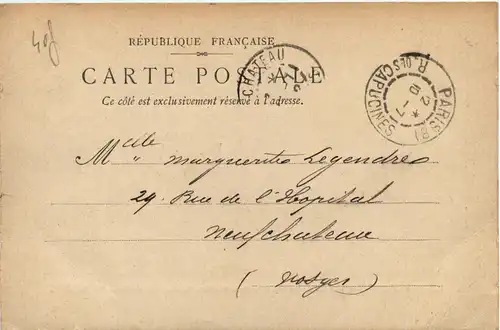 40f
RÉPUBLIQUE FRANÇAISE
CARTE POSTALE
Ce côté est exclusivement réservé à l'adresse.
CHATEAU
PARIS (8)
R. DES CAPUCINES
Mlle Marguerite Legendre
29. Rue de l'Hopital
Neufchateau
(Vosges)